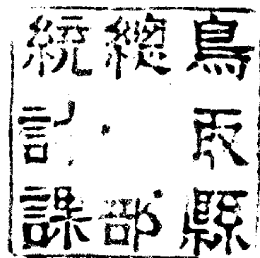 鳥取縣
總部
統計課